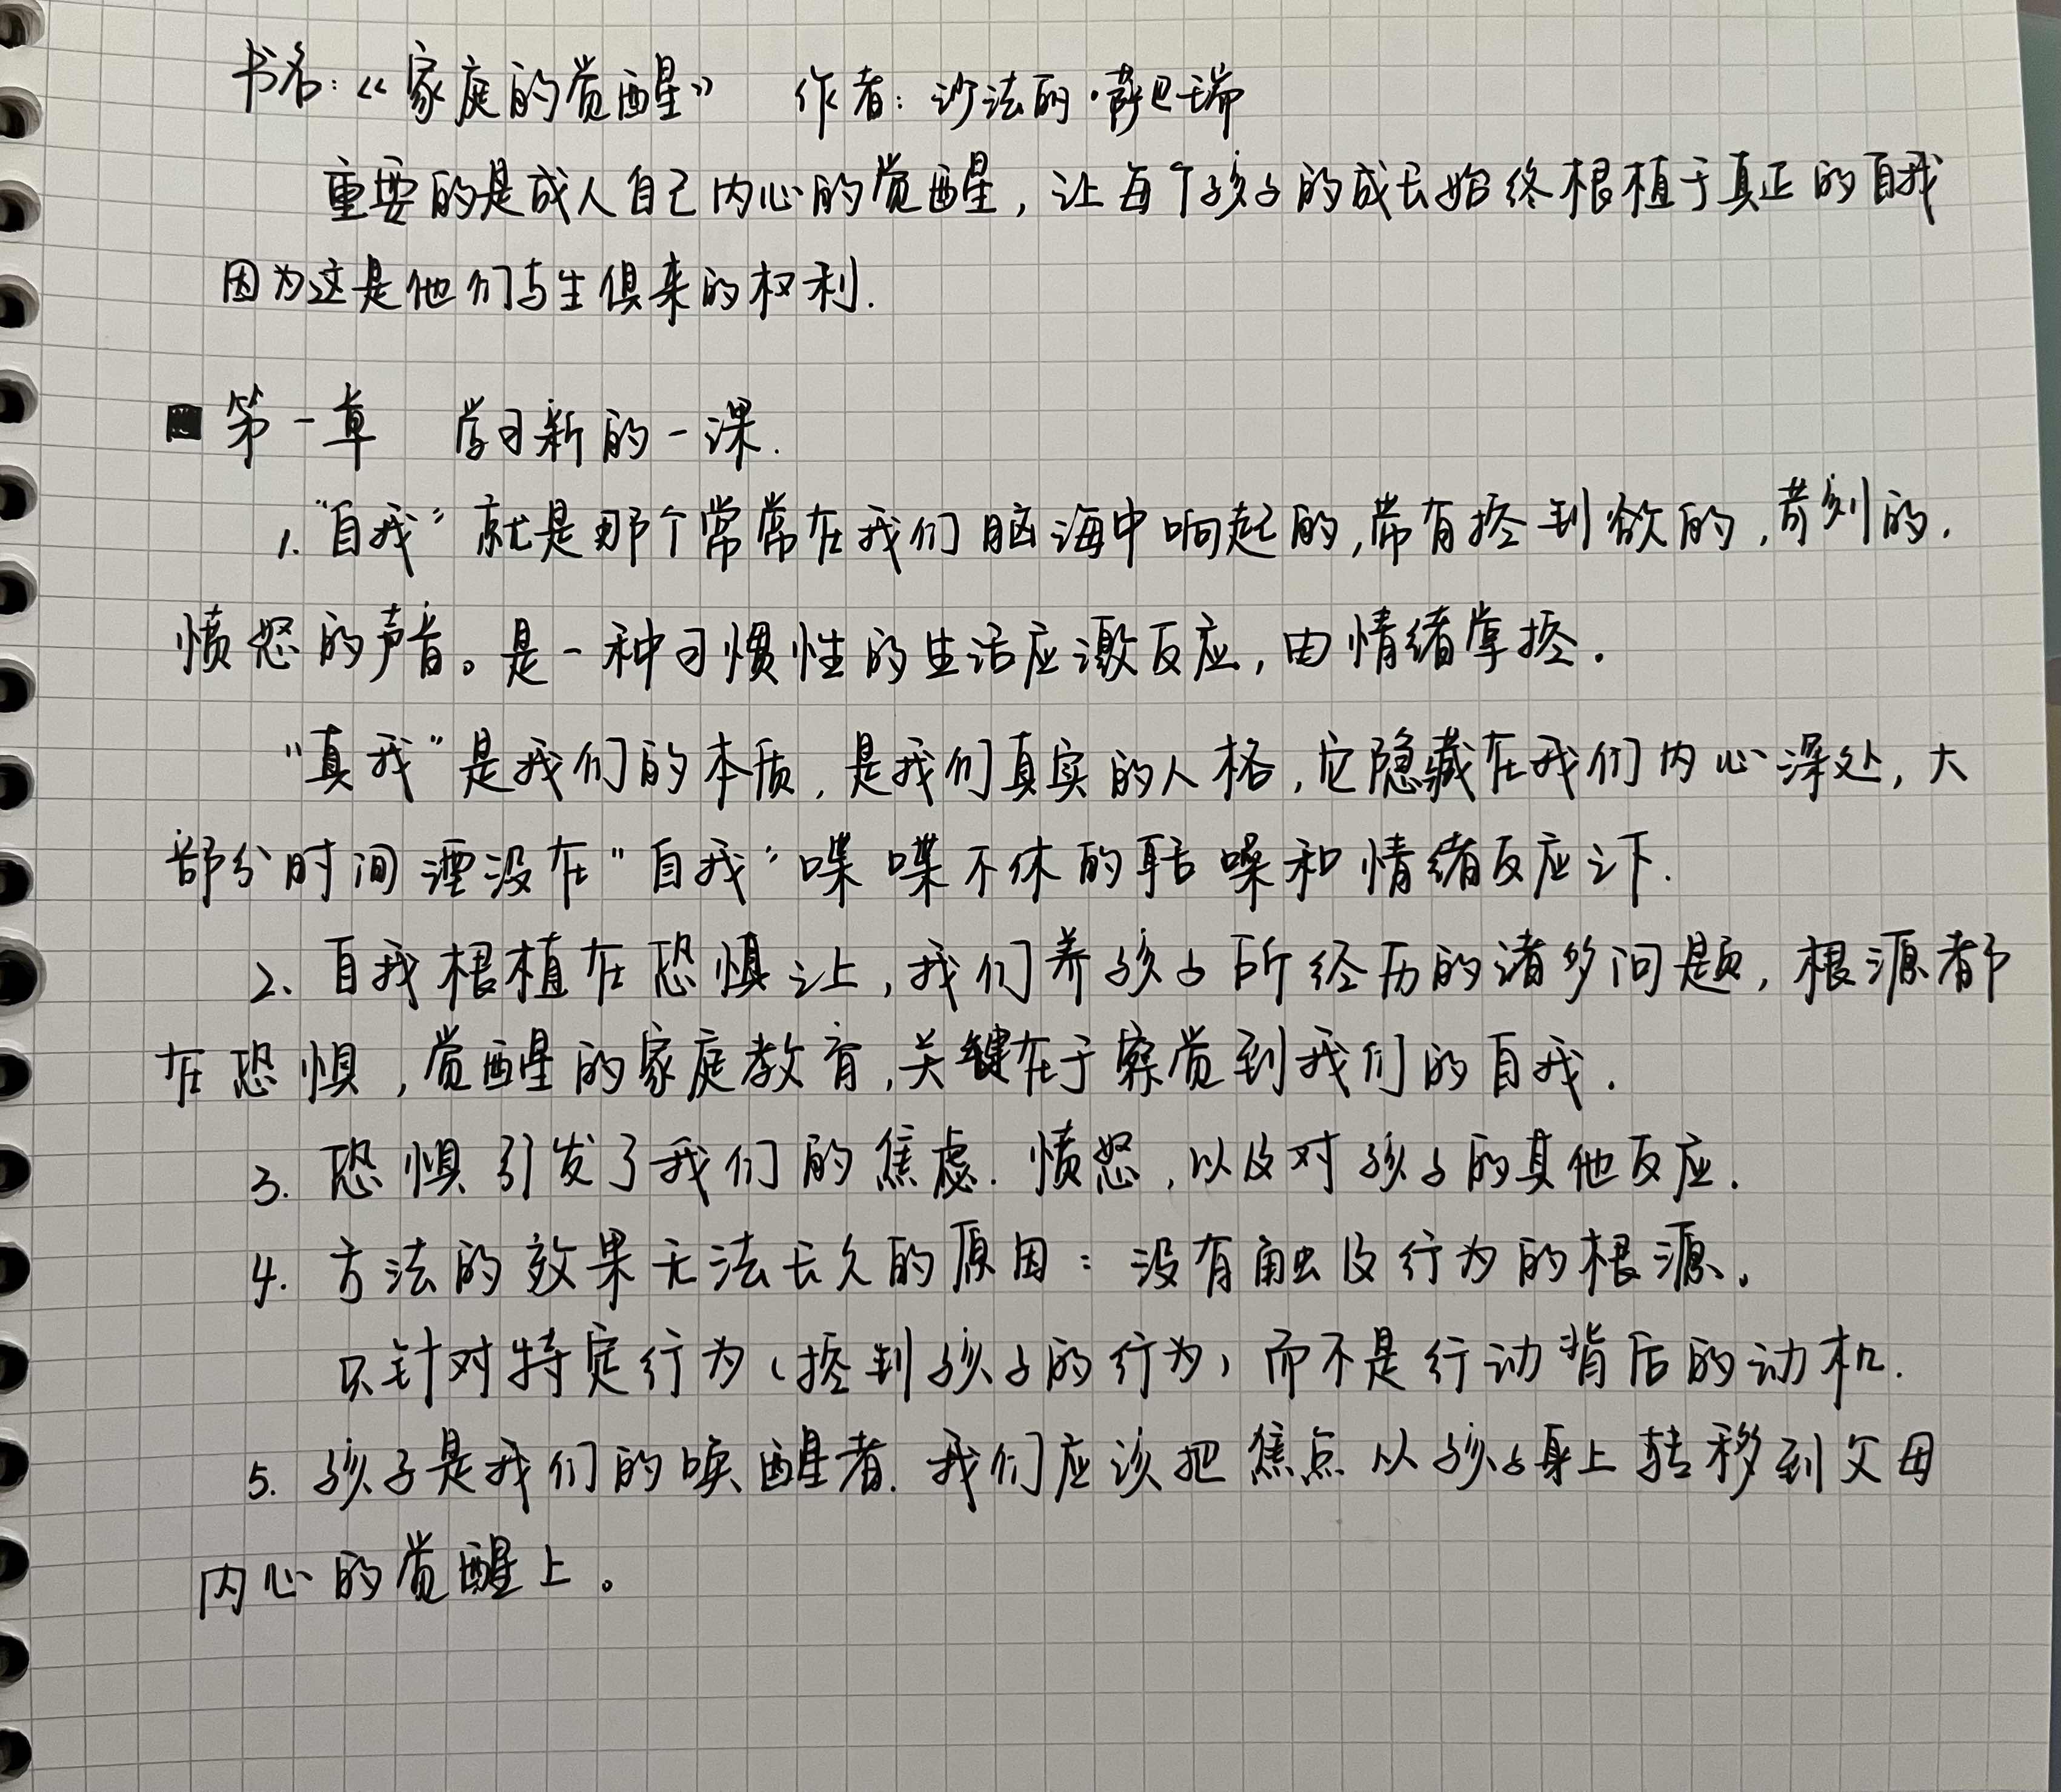 书名：《家庭的觉醒》 作者：沙法丽·萨巴瑞
重要的是成人自己内心的觉醒，让每个孩子的成长始终根植于真正的自我
因为这是他们与生俱来的权利.
第一章 学习新的一课.
1. “自我”就是那个常常在我们脑海中响起的,带有控制欲的,苛刻的,
愤怒的声音。是一种习惯性的生活应激反应,由情绪掌控.
“真我”是我们的本质,是我们真实的人格,它隐藏在我们内心深处,大
部分时间湮没在“自我”喋喋不休的聒噪和情绪反应之下.
2、自我根植在恐惧之上,我们养孩子所经历的诸多问题,根源都
在恐惧,觉醒的家庭教育,关键在于察觉到我们的自我.
3. 恐惧引发了我们的焦虑.愤怒,以及对孩子的其他反应.
4. 方法的效果无法长久的原因：没有触及行为的根源,
只针对特定行为(控制孩子的行为)而不是行动背后的动机.
5. 孩子是我们的唤醒者.我们应该把焦点从孩子身上转移到父母
内心的觉醒上。